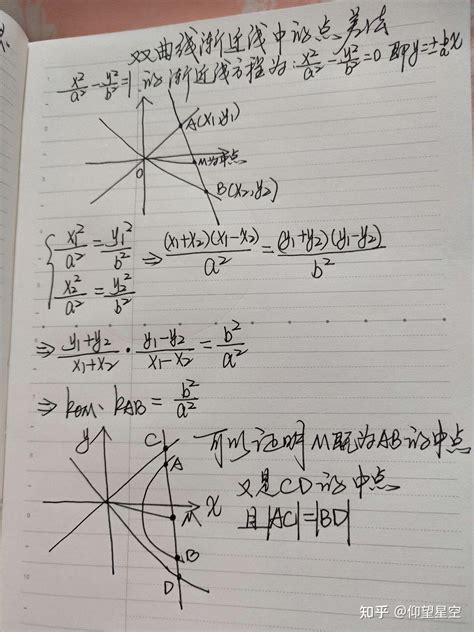 双曲线渐近线中的点差法
x²/a² - y²/b² = 1 的渐近线方程为: x²/a² - y²/b² = 0 即 y = ± b/a x
A(x₁,y₁)
O
M为中点
B(x₂,y₂)
{ x₁²/a² = y₁²/b²
x₂²/a² = y₂²/b²
⇒ (x₁+x₂)(x₁-x₂)/a² = (y₁+y₂)(y₁-y₂)/b²
⇒ y₁+y₂/x₁+x₂ · y₁-y₂/x₁-x₂ = b²/a²
⇒ kOM · kAB = b²/a²
y
C
A
x
M
B
D
可以证明M既为AB的中点
又是CD的中点
且|AC|=|BD|
知乎 @仰望星空